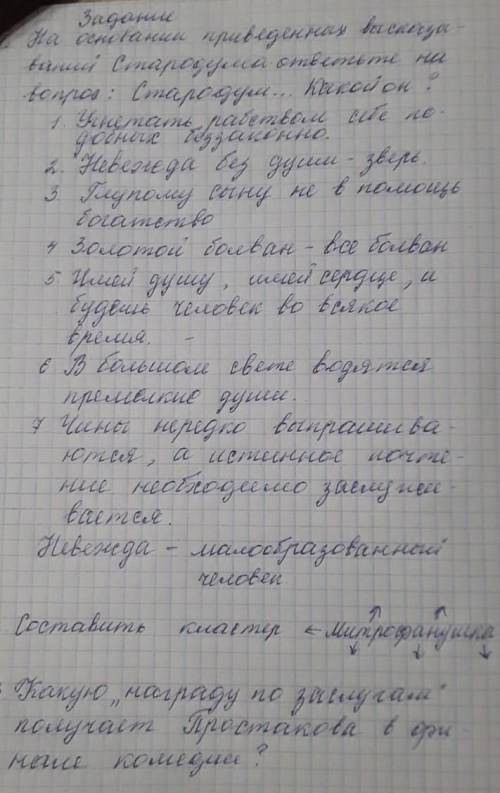 Задание
На основании приведенных высказы-
ваний Стародума ответьте на
вопрос: Стародум... Какой он?
1. Угнетать рабством себе по-
добных беззаконно.
2. Невежда без души - зверь.
3. Глупому сыну не в помощь
богатство
4 Золотой болван - все болван
5 Имей душу, имей сердце, и
будешь человек во всякое
время. -
6 В большом свете водятся
премелкие души.
7 Чины нередко выпрашива-
ются, а истинное почте-
ние необходимо заслужи-
вается.
Невежда - малообразованный
человек
Составить кластер ← Митрофанушка
Какую "награду по заслугам"
получает Простакова в фи-
нале комедии?